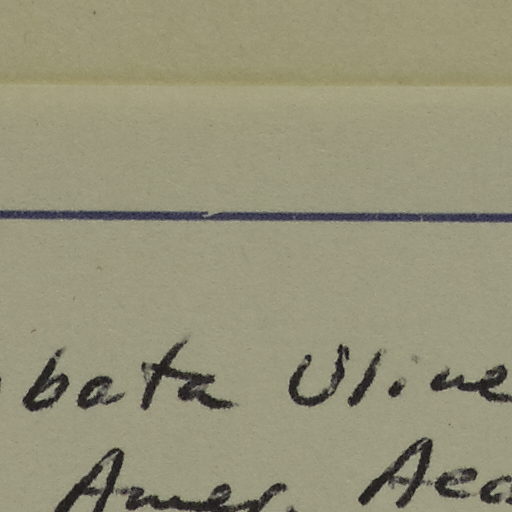 bata Uline
Amer. Aca